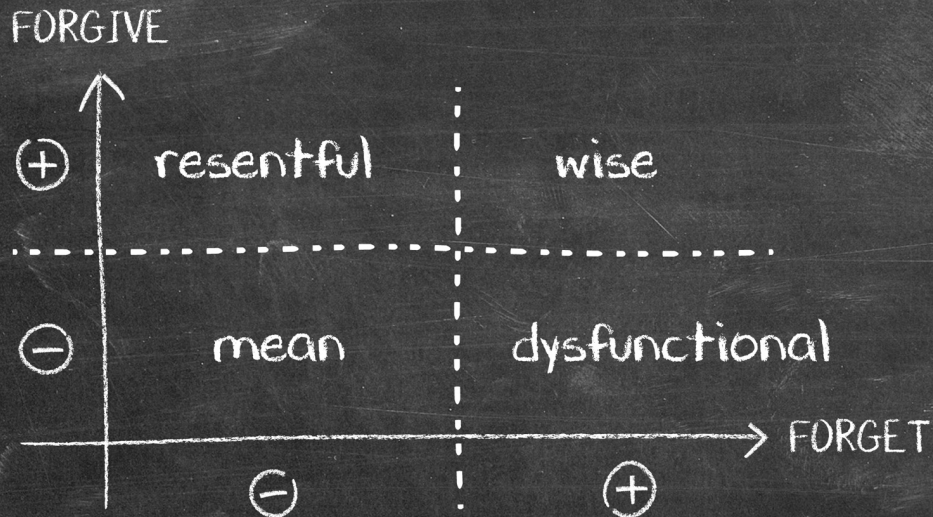 FORGIVE
+ resentful wise
- mean dysfunctional
FORGET
- +